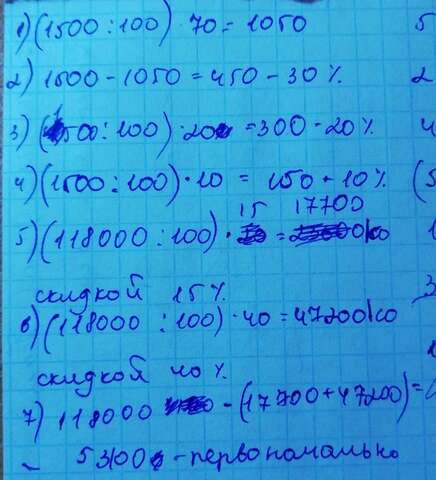 1) (1500 : 100) · 70 = 1050
2) 1500 - 1050 = 450 - 30%
3) (1500 : 100) · 20 = 300 - 20%
4) (1500 : 100) · 10 = 150 - 10%
5) (118000 : 100) · 15 = 17700 со
скидкой 15%
6) (118000 : 100) · 40 = 47200 со
скидкой 40%
7) 118000 - (17700 + 47200) =
53100 - первоначально